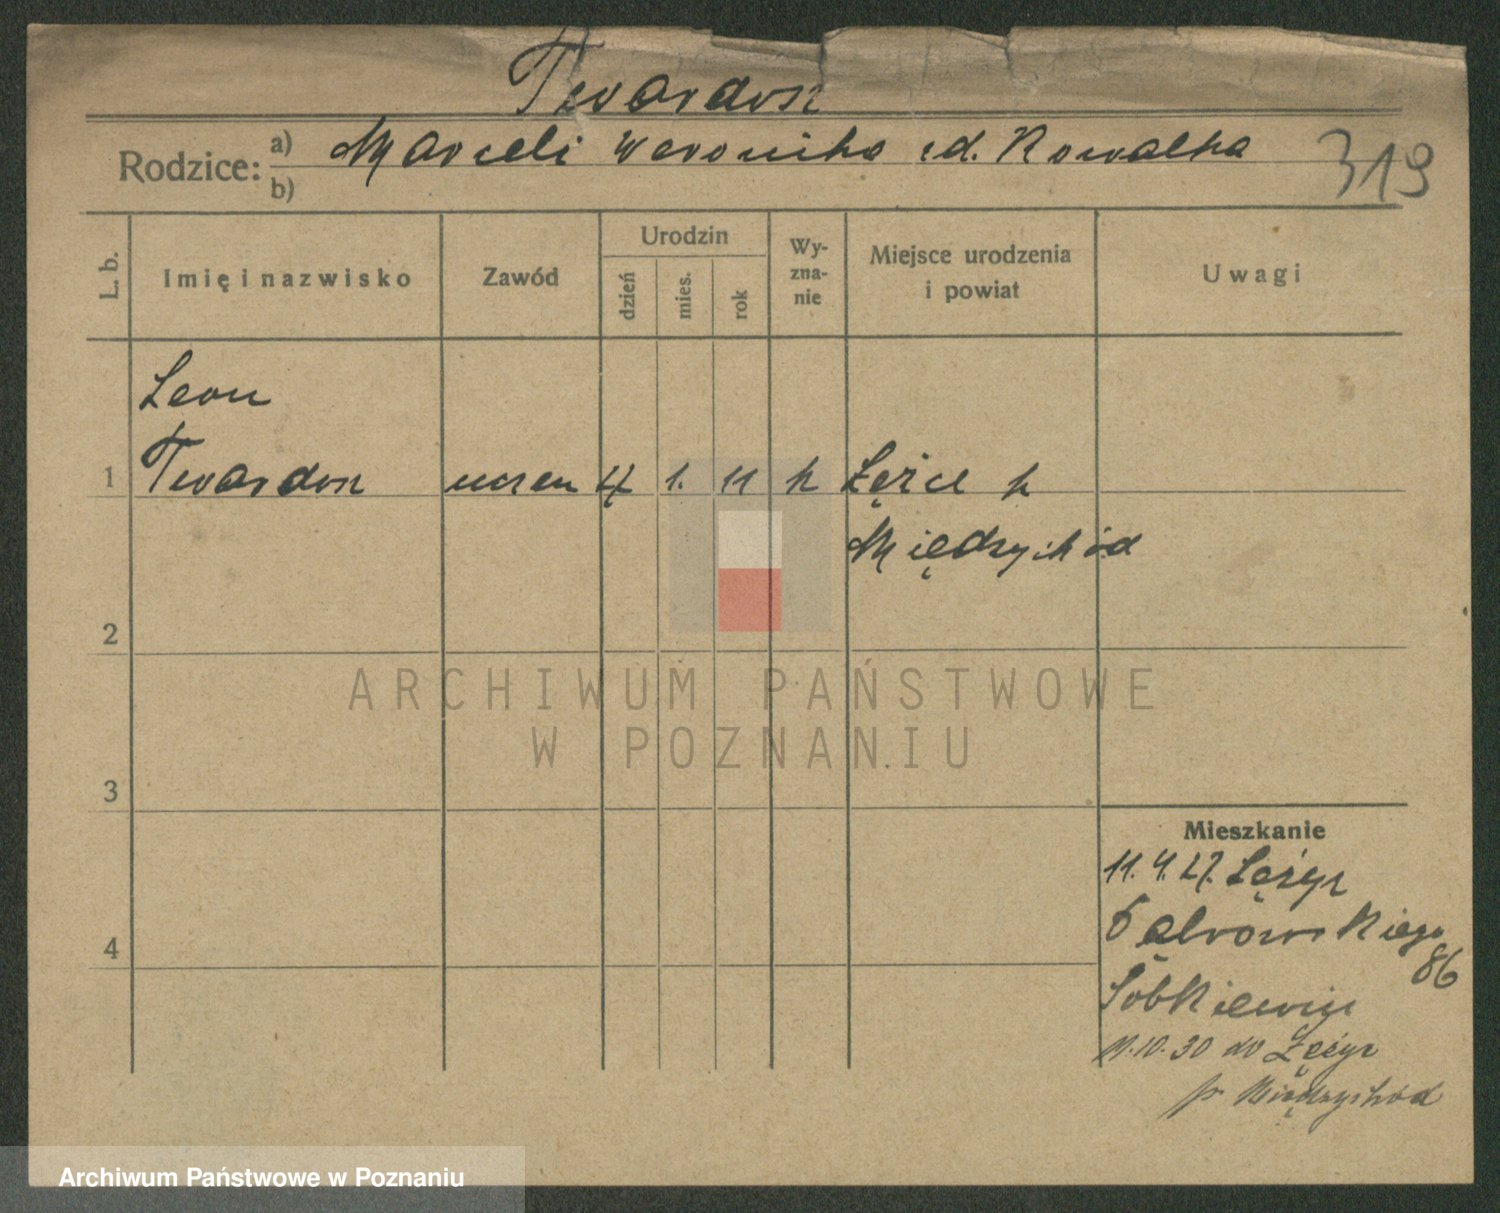 Twardosz
Rodzice:
a) Marceli Weronika zd. Kowalka
b)
319
L. b.
Imię i nazwisko
Zawód
Urodzin
dzień
mies.
rok
Wy-
zna-
nie
Miejsce urodzenia
i powiat
Uwagi
Leon
1 Twardosz uczeń 4 1. 11 k Łężce p
Międzychód
2
3
4
Mieszkanie
11.4.27.
86
Sobkiewicz
11.10.30 do
p. Międzychód
ARCHIWUM PAŃSTWOWE
W POZNANIU
Archiwum Państwowe w Poznaniu